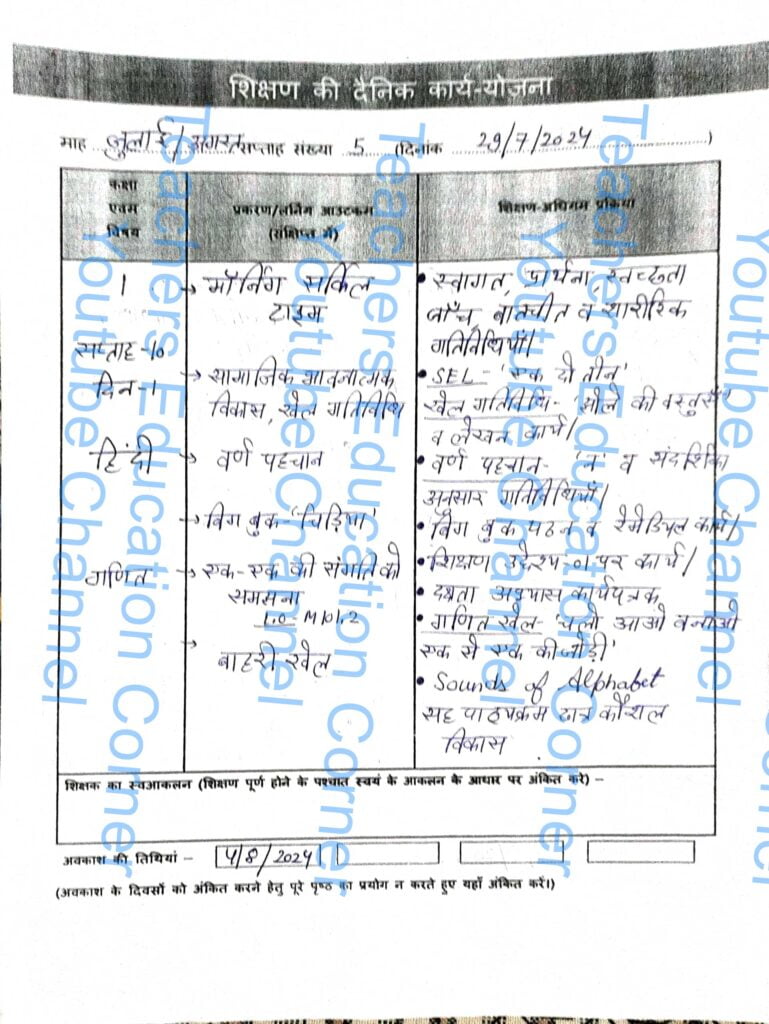 शिक्षण की दैनिक कार्य-योजना
माह जुलाई/अगस्त सप्ताह संख्या 5 (दिनांक 29/7/2024)
कक्षा
एवम
विषय
प्रकरण/लर्निंग आउटकम
(संक्षिप्त में)
शिक्षण-अधिगम प्रक्रिया
1
सप्ताह-10
दिन-1
हिंदी
गणित
→ मॉर्निंग सर्किल
टाइम
→ सामाजिक भावनात्मक
विकास, खेल गतिविधि
→ वर्ण पहचान
→ बिग बुक-'चिड़िया'
→ एक-एक की संगति को
समझना
→ बाहरी खेल
• स्वागत, प्रार्थना, स्वच्छता
जाँच, बातचीत व शारीरिक
गतिविधियाँ।
• SEL - 'एक दो तीन'
खेल गतिविधि- 'झोले की वस्तुएँ'
व लेखन कार्य।
• वर्ण पहचान- 'न' व संदर्शिका
अनुसार गतिविधियाँ।
• बिग बुक पठन व रेमेडियल कार्य।
• शिक्षण उद्देश्य-01 पर कार्य।
• दक्षता अभ्यास कार्यपत्रक
• गणित खेल- 'चलो आओ बनाओ
एक से एक की जोड़ी'
• Sounds of Alphabet
सह पाठ्यक्रम छात्र कौशल
विकास
शिक्षक का स्वआकलन (शिक्षण पूर्ण होने के पश्चात स्वयं के आकलन के आधार पर अंकित करे) –
अवकाश की तिथियां – 4/8/2024
(अवकाश के दिवसों को अंकित करने हेतु पूरे पृष्ठ का प्रयोग न करते हुए यहाँ अंकित करें।)
Teachers Education Corner
Youtube Channel
Teachers Education Corner
Youtube Channel
Teachers Education Corner
Youtube Channel
Youtube Channel